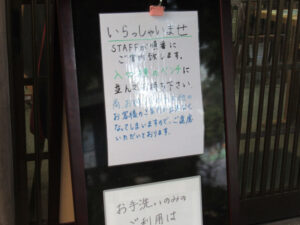 いらっしゃいませ
STAFFが順番に
ご案内致します。
入口 のベンチに
並んで お待ち下さい
尚、お
お客様の
なってしまいますので、ご遠慮
いただいております。
お手洗いのみの
ご利用は